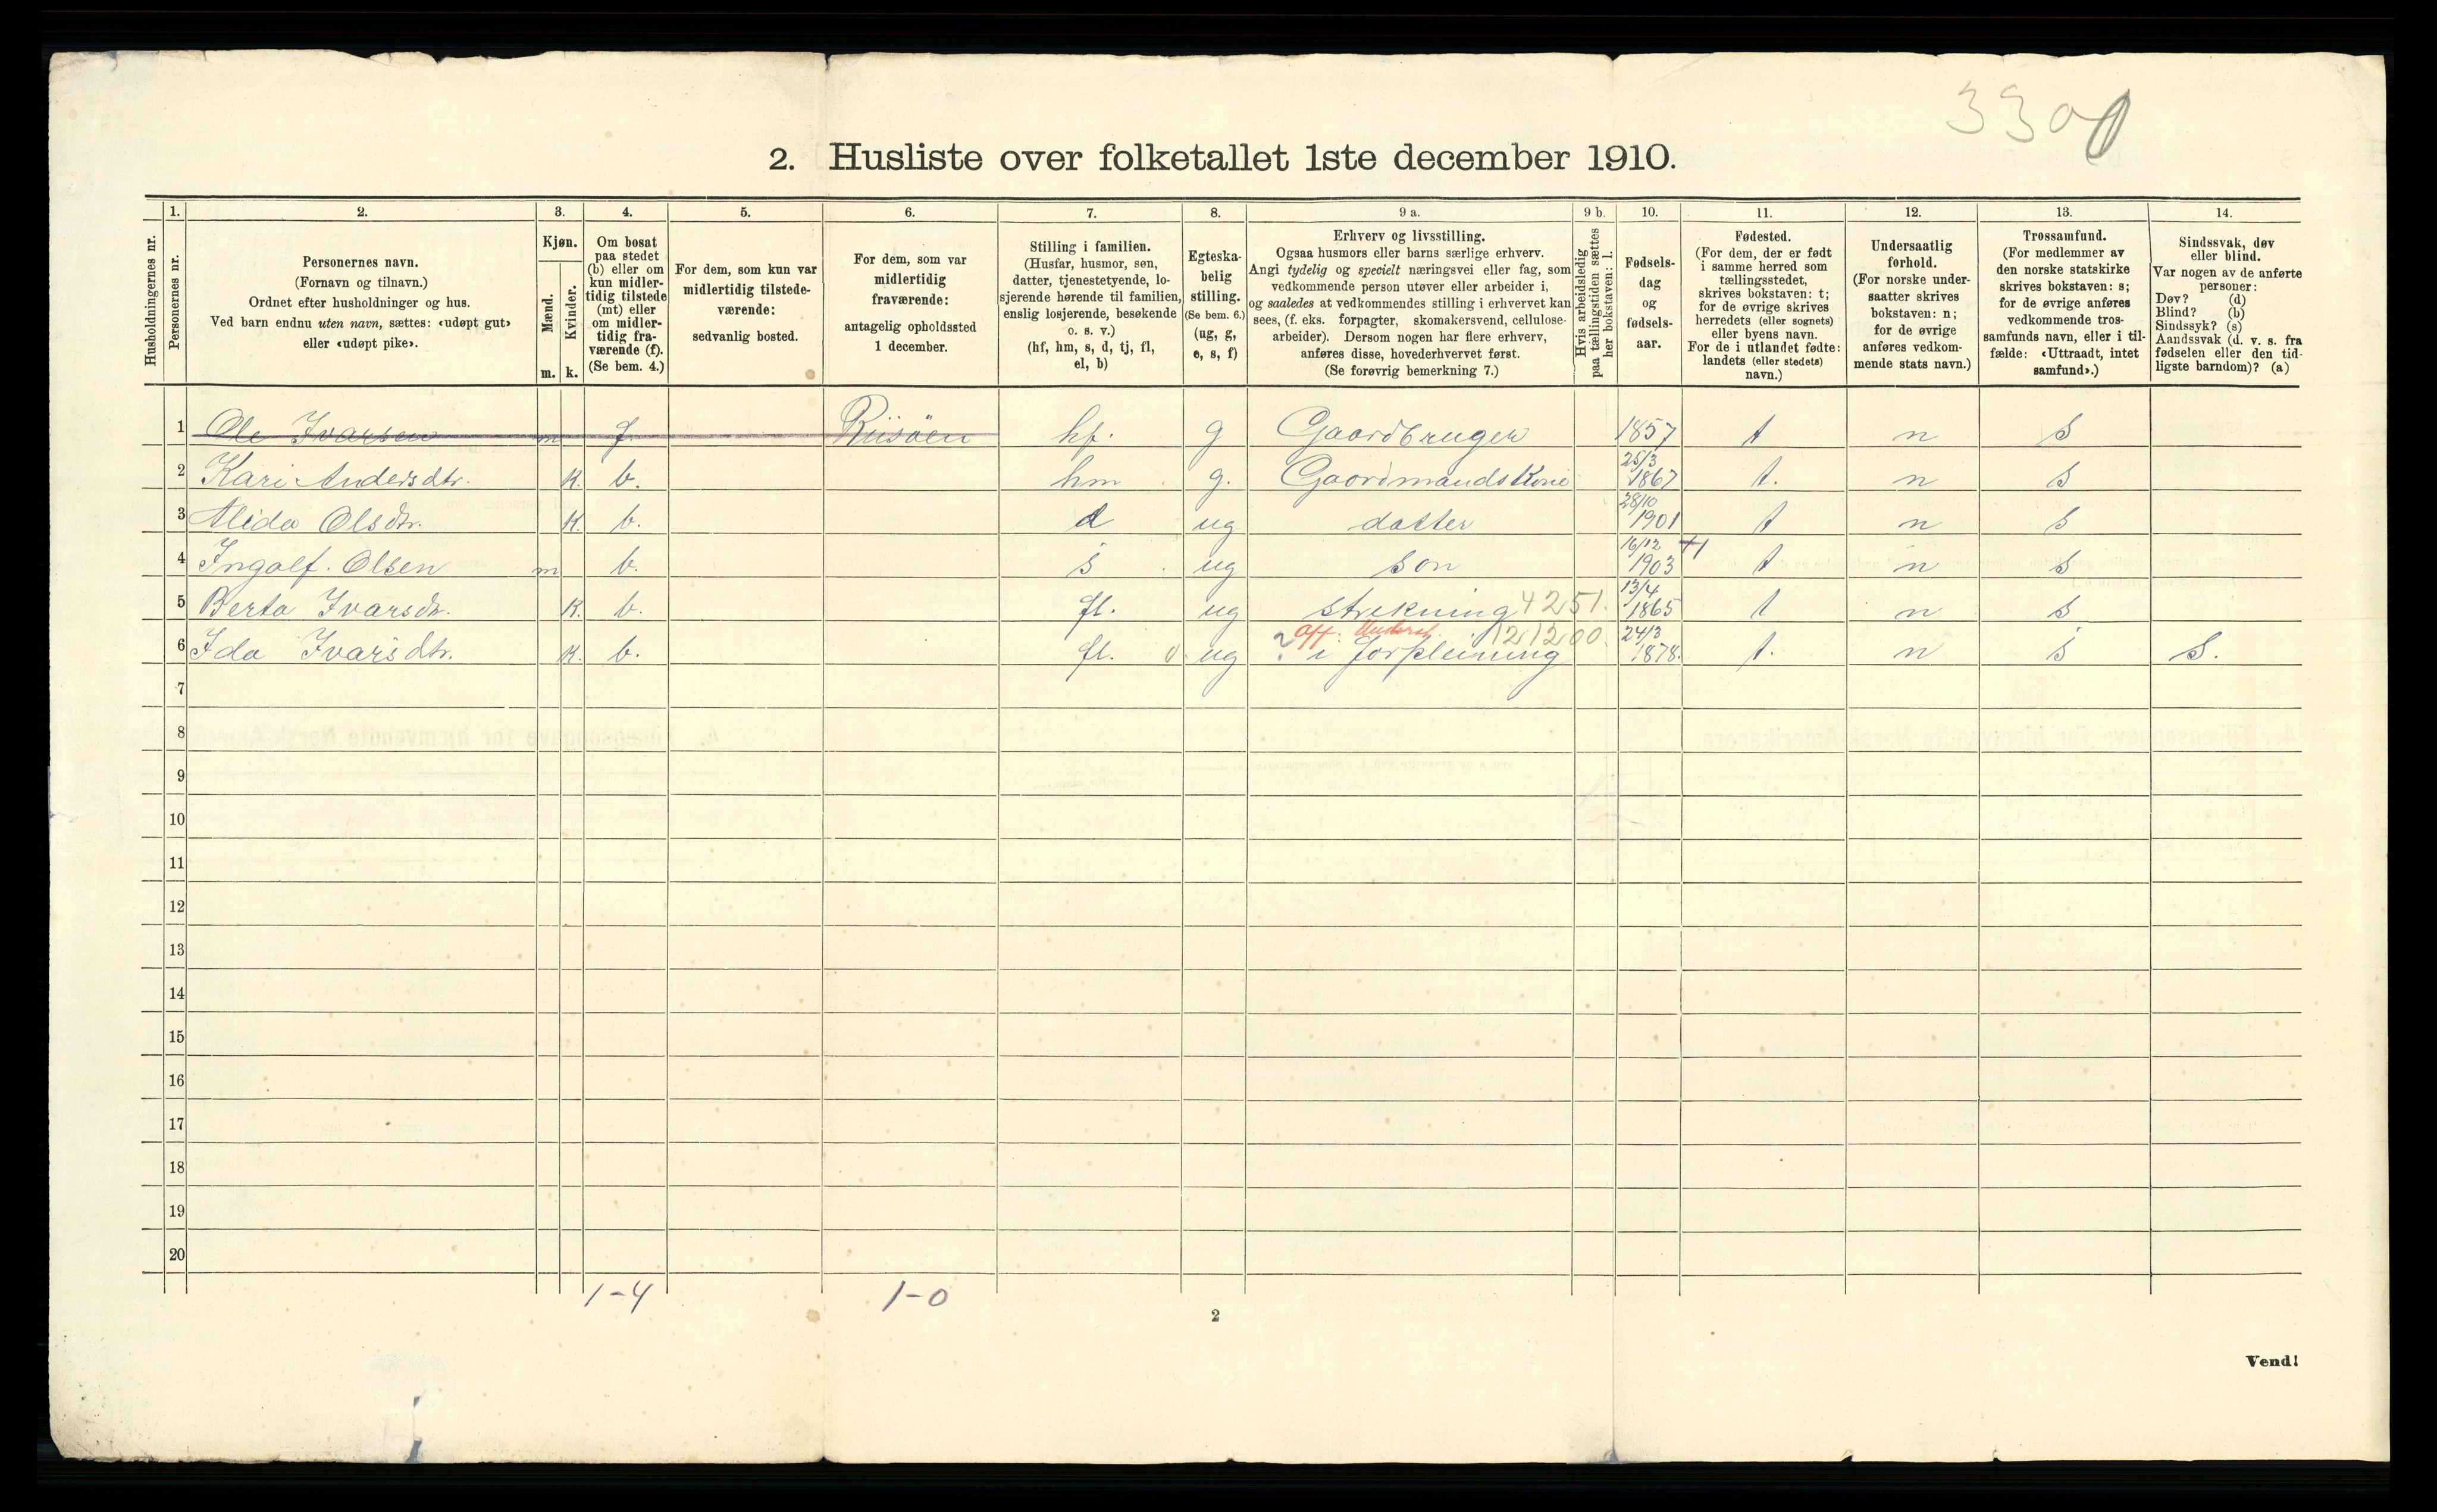 3300
2. Husliste over folketallet 1ste december 1910.
Husholdningernes nr.
1.
Personernes nr.
2.
Personernes navn.
(Fornavn og tilnavn.)
Ordnet efter husholdninger og hus.
Ved barn endnu uten navn, sættes: «udøpt gut»
eller «udøpt pike».
3.
Kjøn.
Mænd.
Kvinder.
m. k.
4.
Om bosat
paa stedet
(b) eller om
kun midler-
tidig tilstede
(mt) eller
om midler-
tidig fra-
værende (f).
(Se bem. 4.)
5.
For dem, som kun var
midlertidig tilstede-
værende:
sedvanlig bosted.
6.
For dem, som var
midlertidig
fraværende:
antagelig opholdssted
1 december.
7.
Stilling i familien.
(Husfar, husmor, søn,
datter, tjenestetyende, lo-
sjerende hørende til familien,
enslig losjerende, besøkende
o. s. v.)
(hf, hm, s, d, tj, fl,
el, b)
8.
Egteska-
belig
stilling.
(Se bem. 6.)
(ug, g,
e, s, f)
9 a.
Erhverv og livsstilling.
Ogsaa husmors eller barns særlige erhverv.
Angi tydelig og specielt næringsvei eller fag, som
vedkommende person utøver eller arbeider i,
og saaledes at vedkommendes stilling i erhvervet kan
sees, (f. eks. forpagter, skomakersvend, cellulose-
arbeider). Dersom nogen har flere erhverv,
anføres disse, hovederhvervet først.
(Se forøvrig bemerkning 7.)
9 b.
Hvis arbeidsledig
paa tællingstiden sættes
her bokstaven: l.
10.
Fødsels-
dag
og
fødsels-
aar.
11.
Fødested.
(For dem, der er født
i samme herred som
tællingsstedet,
skrives bokstaven: t;
for de øvrige skrives
herredets (eller sognets)
eller byens navn.
For de i utlandet fødte:
landets (eller stedets)
navn.)
12.
Undersaatlig
forhold.
(For norske under-
saatter skrives
bokstaven: n;
for de øvrige
anføres vedkom-
mende stats navn.)
13.
Trossamfund.
(For medlemmer av
den norske statskirke
skrives bokstaven: s;
for de øvrige anføres
vedkommende tros-
samfunds navn, eller i til-
fælde: «Uttraadt, intet
samfund».)
14.
Sindssvak, døv
eller blind.
Var nogen av de anførte
personer:
Døv? (d)
Blind? (b)
Sindssyk? (s)
Aandssvak (d. v. s. fra
fødselen eller den tid-
ligste barndom)? (a)
1 Ole Ivarsen m f. Riisöen hf. g Gaardbruger 1857 t n s
2 Kari Andersdtr. K. b. hm g. Gaardmandskone 25/3 1867 t. n s
3 Alida Olsdtr. K. b. d ug datter 28/10 1901 t n s
4 Ingolf. Olsen m b. s ug son 16/12 1903 t n s
5 Berta Ivarsdtr. K. b. fl. ug strikning 4251. 13/4 1865 t n s
off. Underst. 121200.
6 Ida Ivarsdtr. K. b. fl. ug ? i forpleining 24/3 1878. t. n s s.
7
8
9
10
11
12
13
14
15
16
17
18
19
20
1-4 1-0
2
Vend!